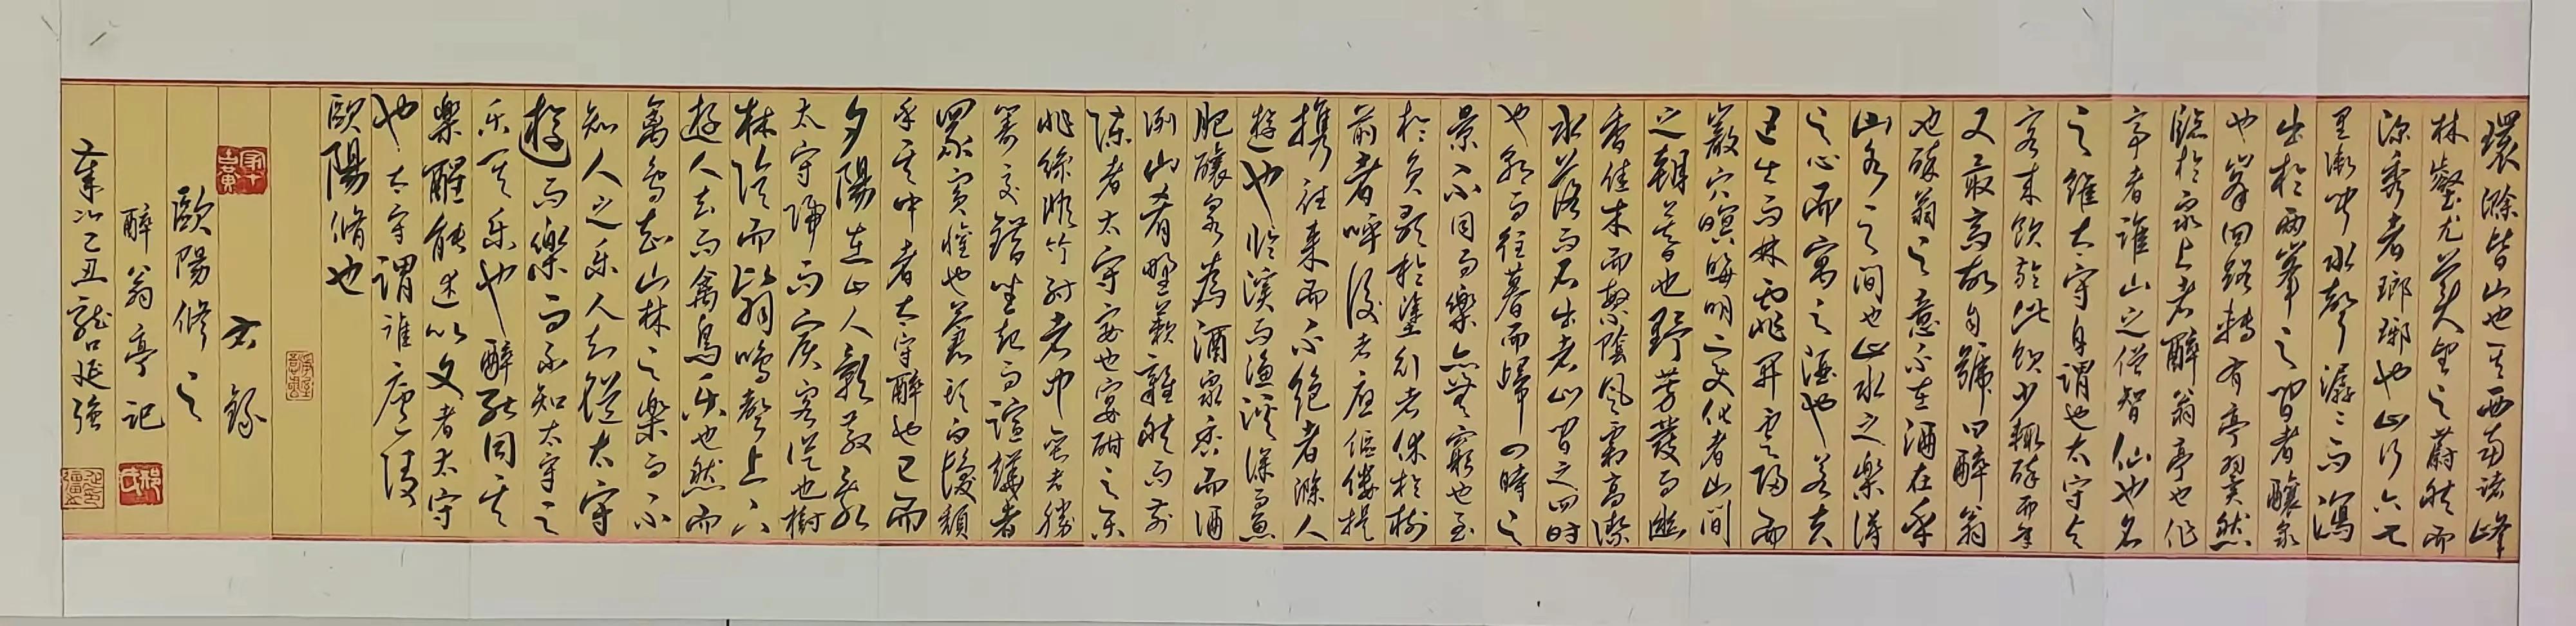 環滁皆山也其西南諸峰
林壑尤美望之蔚然而
深秀者瑯琊也山行六七
里漸聞水聲潺〻而瀉
出於兩峯之間者釀泉
也峯回路轉有亭翼然
臨於泉上者醉翁亭也作
亭者誰山之僧智仙也名
之誰太守自謂也太守與
客來飲於此飲少輒醉而年
又最高故自號曰醉翁
也醉翁之意不在酒在乎
山水之間也山水之樂得
之心而寓之酒也若夫
日出而林霏開雲歸而
巖穴暝晦明變化者山間
之朝暮也野芳發而幽
香佳木而繁陰風霜高潔
水落而石出者山間之四時
也朝而往暮而歸四時之
景不同而樂亦無窮也至
於負者歌於塗行者休於樹
前者呼後者應傴僂提
攜往來而不絕者滁人
遊也臨溪而漁溪深而魚
肥釀泉為酒泉香而酒
洌山肴野蔌雜然而前
陳者太守宴也宴酣之樂
非絲非竹射者中弈者勝
籌交錯坐起而諠譁者
眾賓懽也蒼顏白髮頹
乎其中者太守醉也已而
夕陽在山人影散亂
太守歸而賓客從也樹
林陰而翳鳴聲上下
遊人去而禽鳥樂也然而
禽鳥知山林之樂而不
知人之樂人知從太守
遊而樂而不知太守之
樂其樂也醉能同其
樂醒能述以文者太守
也太守謂誰廬陵
歐陽脩也
右錄
歐陽修之
醉翁亭記
歲次乙丑龍延強